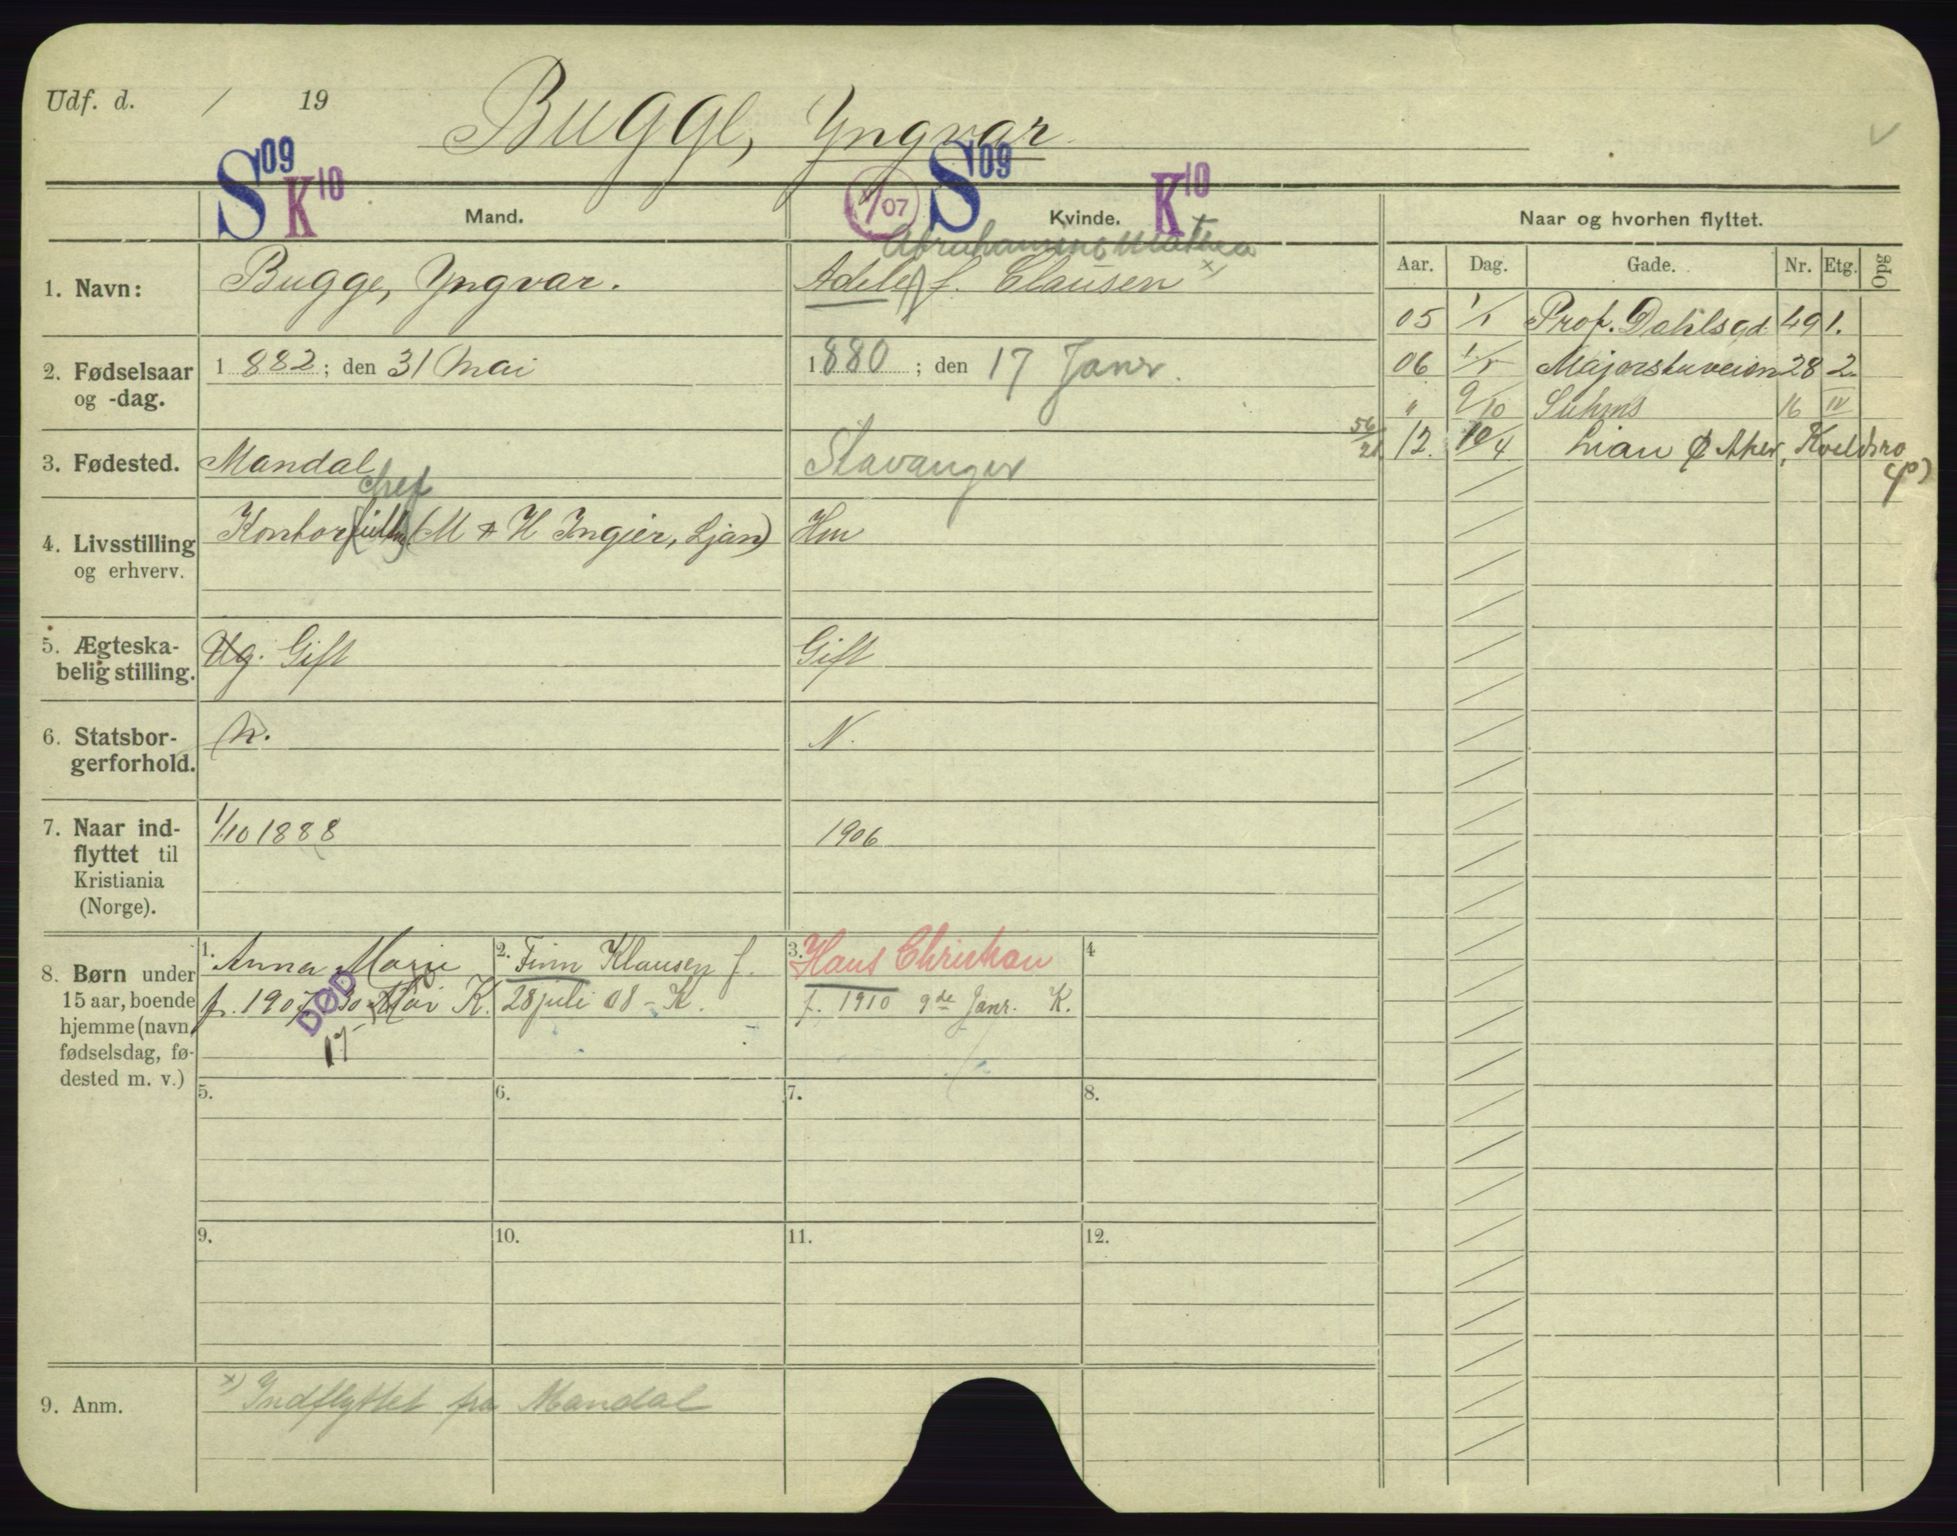 Udf. d. / 19
Bugge, Yngvar
S09 K10 /07 S09 K10
Mand. Kvinde. Naar og hvorhen flyttet.
Aar. Dag. Gade. Nr. Etg. Opg
Abrahamine Mathea
1. Navn: Bugge, Yngvar. Adele f. Clausen x)
05 1/1 Prof. Dahlsgd. 49 1.
2. Fødselsaar og -dag. 1882; den 31 Mai 1880; den 17 Janr.
06 Majorstuveien 28 2.
" 9/10 Suhms 16 IV
3. Fødested. Mandal Stavanger
56/21 12. 10/4 Lian Aker, Kveldsro
chef
4. Livsstilling og erhverv. Kontor (M & H Ingier, Ljan) Hm
5. Ægteskabelig stilling. Ug. Gift Gift
6. Statsborgerforhold. N. N.
7. Naar indflyttet til Kristiania (Norge). 1/10 1888 1906
8. Børn under 15 aar, boende hjemme (navn, fødselsdag, fødested m. v.)
1. Anna Marie
f. 1907 30 Mai K.
DØD
17
2. Finn Klausen f.
28 juli 08 - K.
3. Hans Christian
f. 1910 9de Janr. K.
4
5. 6. 7. 8.
9. 10. 11. 12.
9. Anm. x) Indflyttet fra Mandal